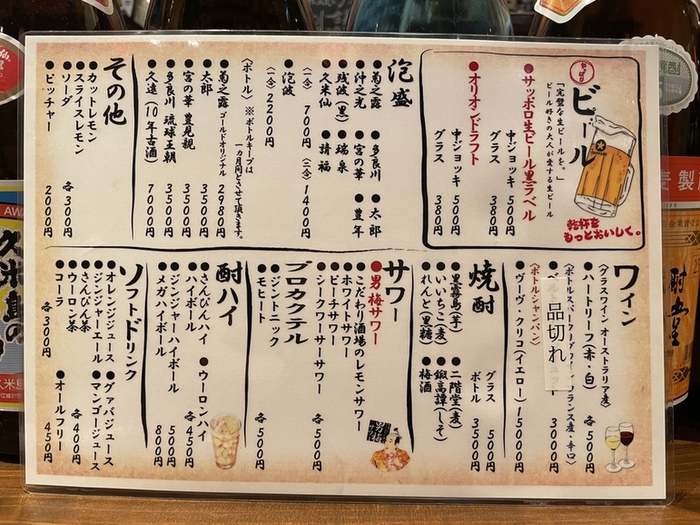 やっぱり
ビール
「完璧な生ビールを。」
ビール好きの大人が愛する生ビール
乾杯を
もっとおいしく。
●サッポロ生ビール黒ラベル
中ジョッキ 500円
グラス 380円
●オリオンドラフト
中ジョッキ 500円
グラス 380円
泡盛
●菊之露 ●多良川 ●太郎
●沖之光 ●宮の華 ●豊年
●残波(黒) ●瑞泉
●久米仙 ●請福
(一合) 700円 (二合) 1400円
●泡波
(一合) 2200円
(ボトル) ※ボトルキープは
一カ月間とさせて頂きます。
●菊之露 ゴールドオリジナル 2980円
●太郎 3500円
●宮の華 豊見親 3500円
●多良川 琉球王朝 3500円
●久遠(10年古酒) 7000円
その他
●カットレモン
●スライスレモン
●ソーダ 各300円
●ピッチャー 2000円
ワイン
(グラスワイン オーストラリア産)
●ハートリーフ(赤・白) 各500円
品切れ
3000円
(ボトルシャンパン)
●ヴーヴ・クリコ(イエロー) 15000円
焼酎
グラス 500円
ボトル 3500円
●黒霧島(芋) ●二階堂(麦)
●いいちこ(麦) ●鍛高譚(しそ)
●れんと(黒糖) ●梅酒
サワー
●男梅サワー
●こだわり酒場のレモンサワー
●ホワイトサワー
●ピーチサワー
●シークワーサーサワー
各500円
プロカクテル
●ジントニック
●モヒート
各500円
酎ハイ
●さんぴんハイ ●ウーロンハイ
各450円
●ハイボール
●ジンジャーハイボール 500円
●メガハイボール 800円
ソフトドリンク
●オレンジジュース ●グァバジュース
●ジンジャーエール ●マンゴージュース
各400円
●さんぴん茶
●ウーロン茶
●コーラ
各300円
●オールフリー 450円